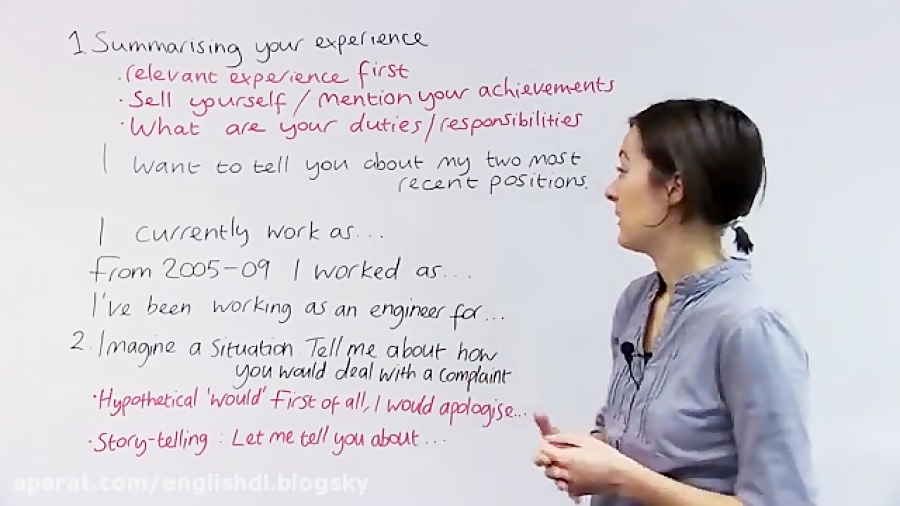 1. Summarising your experience
· relevant experience first
· Sell yourself / mention your achievements
· What are your duties/responsibilities
I want to tell you about my two most
recent positions.
I currently work as...
From 2005-09 I worked as...
I've been working as an engineer for...
2. Imagine a situation Tell me about how
you would deal with a complaint
· Hypothetical 'would' First of all, I would apologise...
· Story-telling : Let me tell you about...
aparat.com/englishdl.blogsky